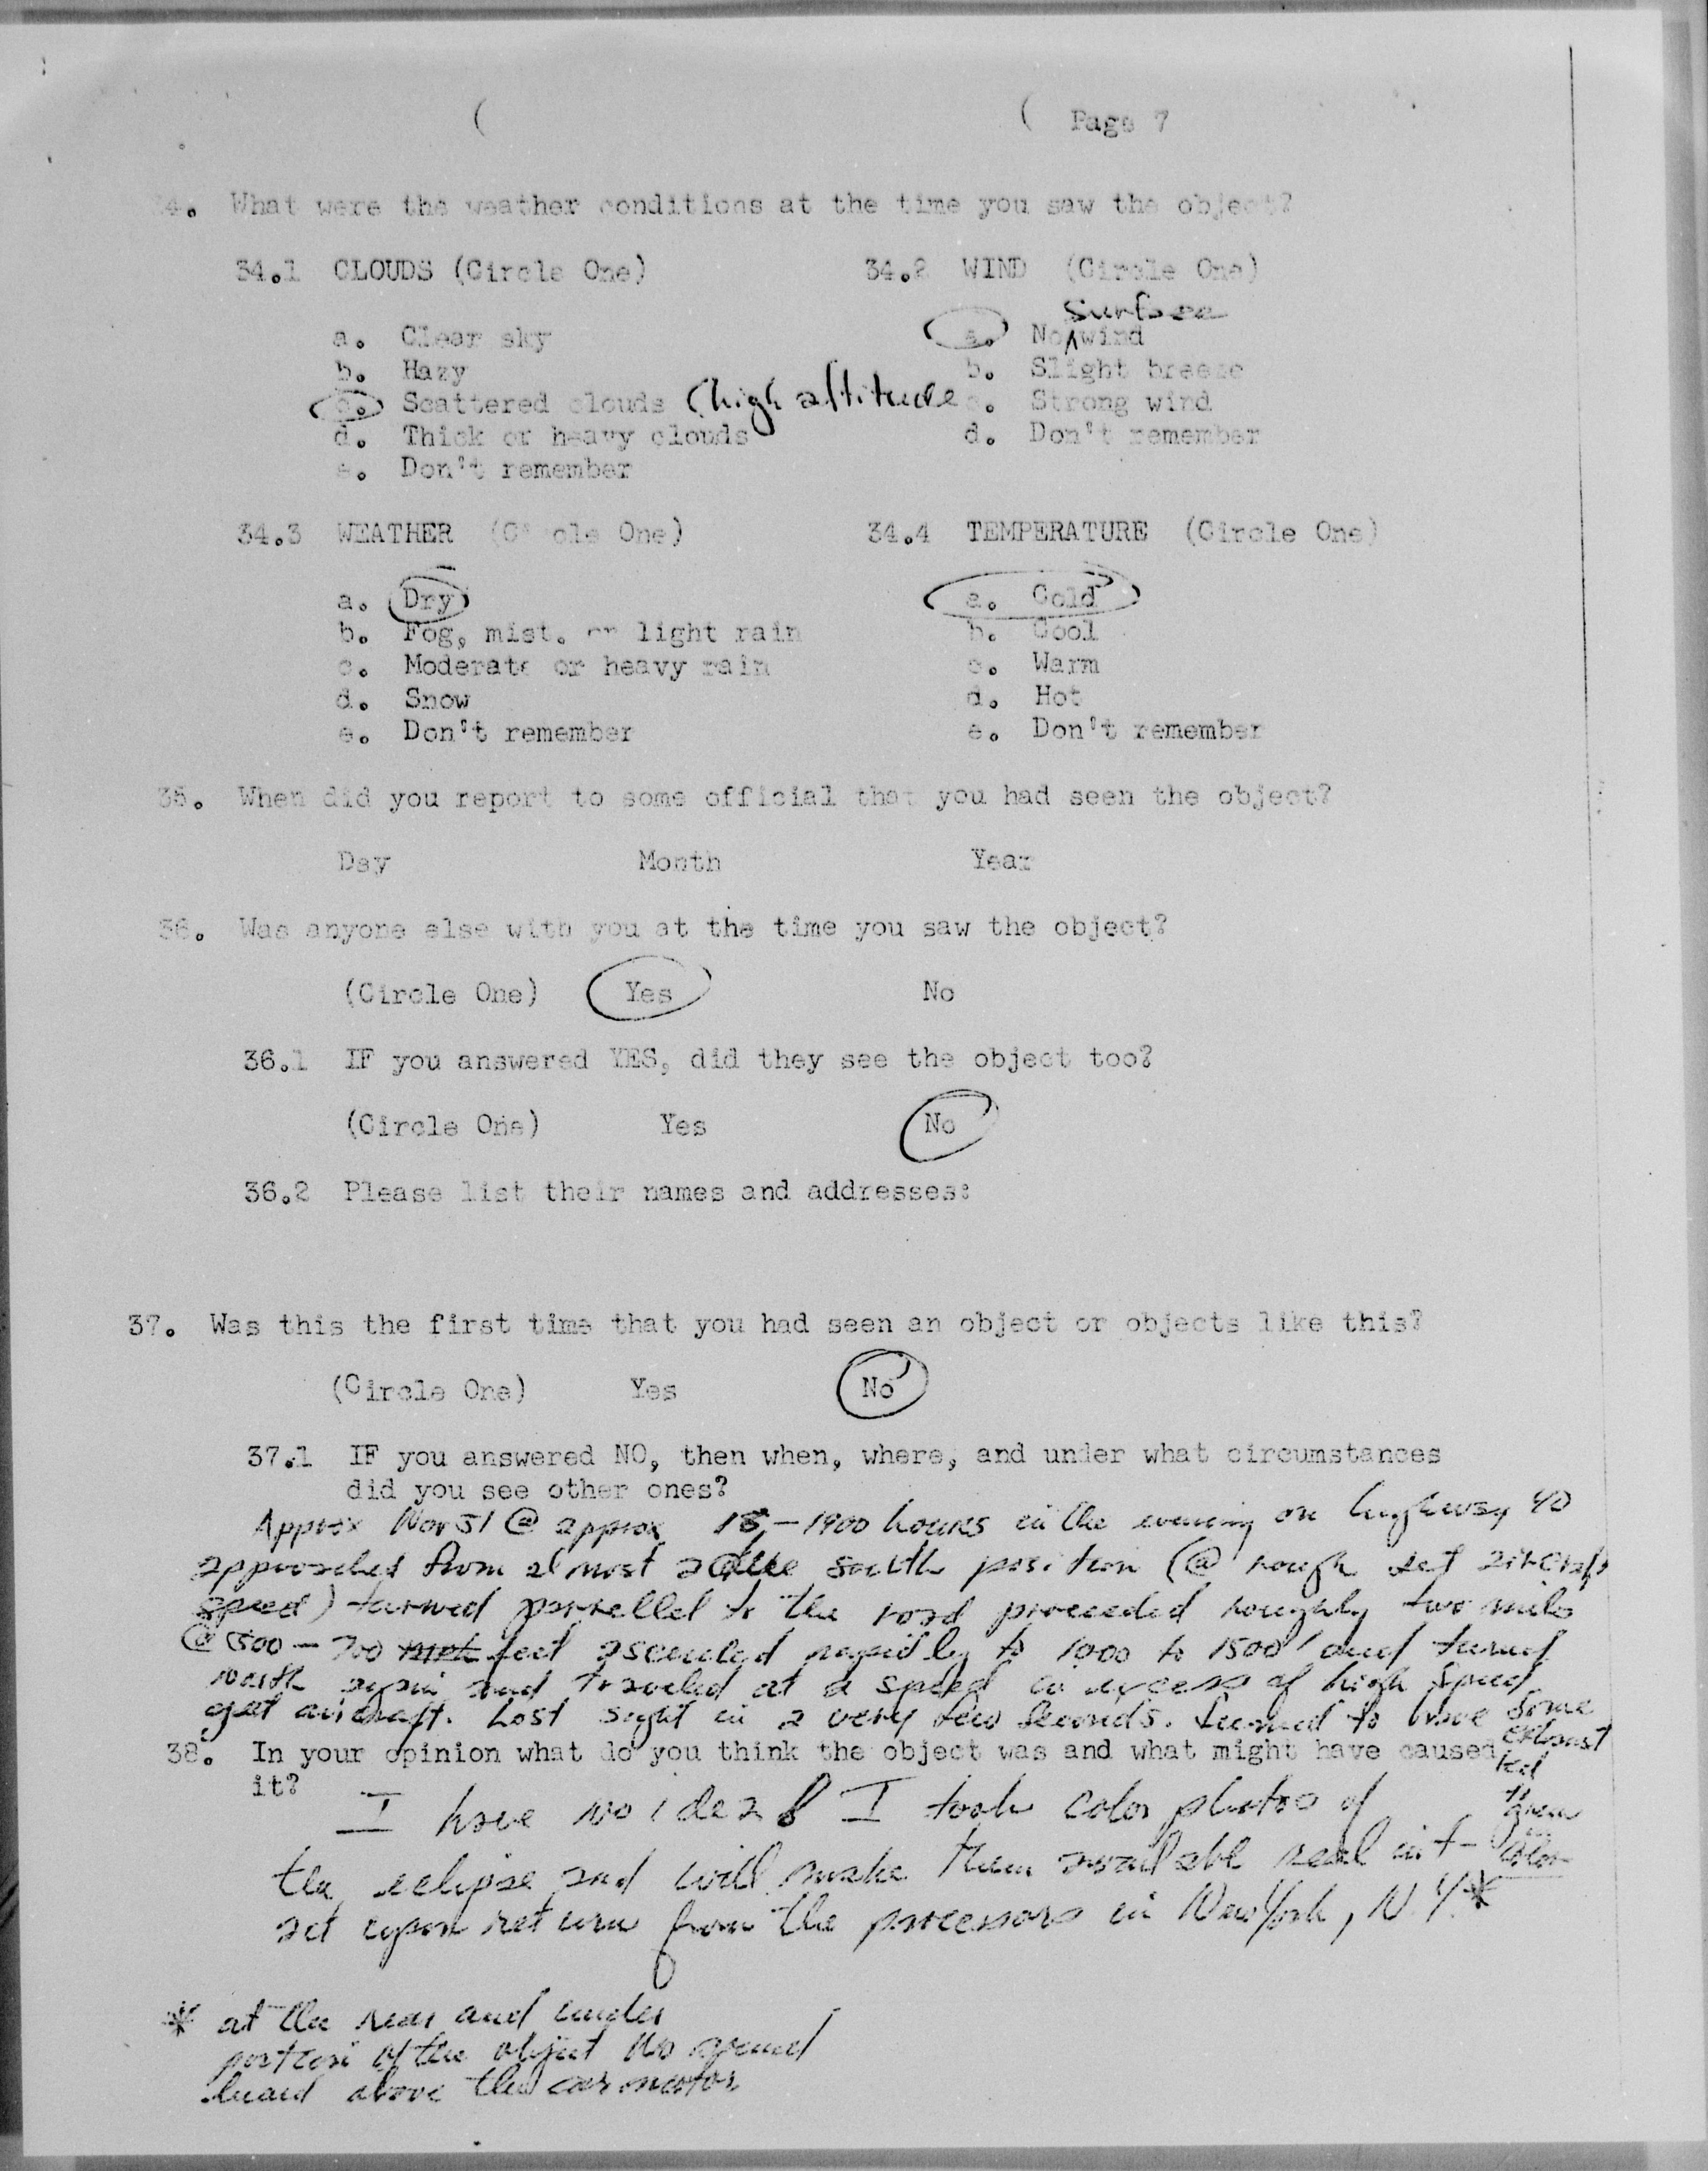 Page 7
34. What were the weather conditions at the time you saw the object?
34.1 CLOUDS (Circle One) 34.2 WIND (Circle One)
surface
a. Clear sky a. No ^ wind
b. Hazy b. Slight breeze
c. Scattered clouds (high altitude c. Strong wind
d. Thick or heavy clouds d. Don't remember
e. Don't remember
34.3 WEATHER (Circle One) 34.4 TEMPERATURE (Circle One)
a. Dry a. Cold
b. Fog, mist, or light rain b. Cool
c. Moderate or heavy rain c. Warm
d. Snow d. Hot
e. Don't remember e. Don't remember
35. When did you report to some official that you had seen the object?
Day Month Year
36. Was anyone else with you at the time you saw the object?
(Circle One) Yes No
36.1 IF you answered YES, did they see the object too?
(Circle One) Yes No
36.2 Please list their names and addresses:
37. Was this the first time that you had seen an object or objects like this?
(Circle One) Yes No
37.1 IF you answered NO, then when, where, and under what circumstances
did you see other ones?
Approx Nov 51 @ approx – 1900 hours in the evening on highway 40
approached from almost a due south position (@ rough jet aircraft
speed) turned parrellel to the road proceeded roughly two miles
@ 500 – 700 feet ascended rapidly to 1000 to 1500' and turned
north again and traveled at a speed in excess of high speed
jet aircraft. Lost sight in a very few seconds. Seemed to have some
exhaust
red
green
color
38. In your opinion what do you think the object was and what might have caused
it?
I have no idea I took color photos of
the eclipse and will make them available
upon return from the processors in New York, N.Y.*
* at the rear and under
portion of the object No sound
heard above the car motor